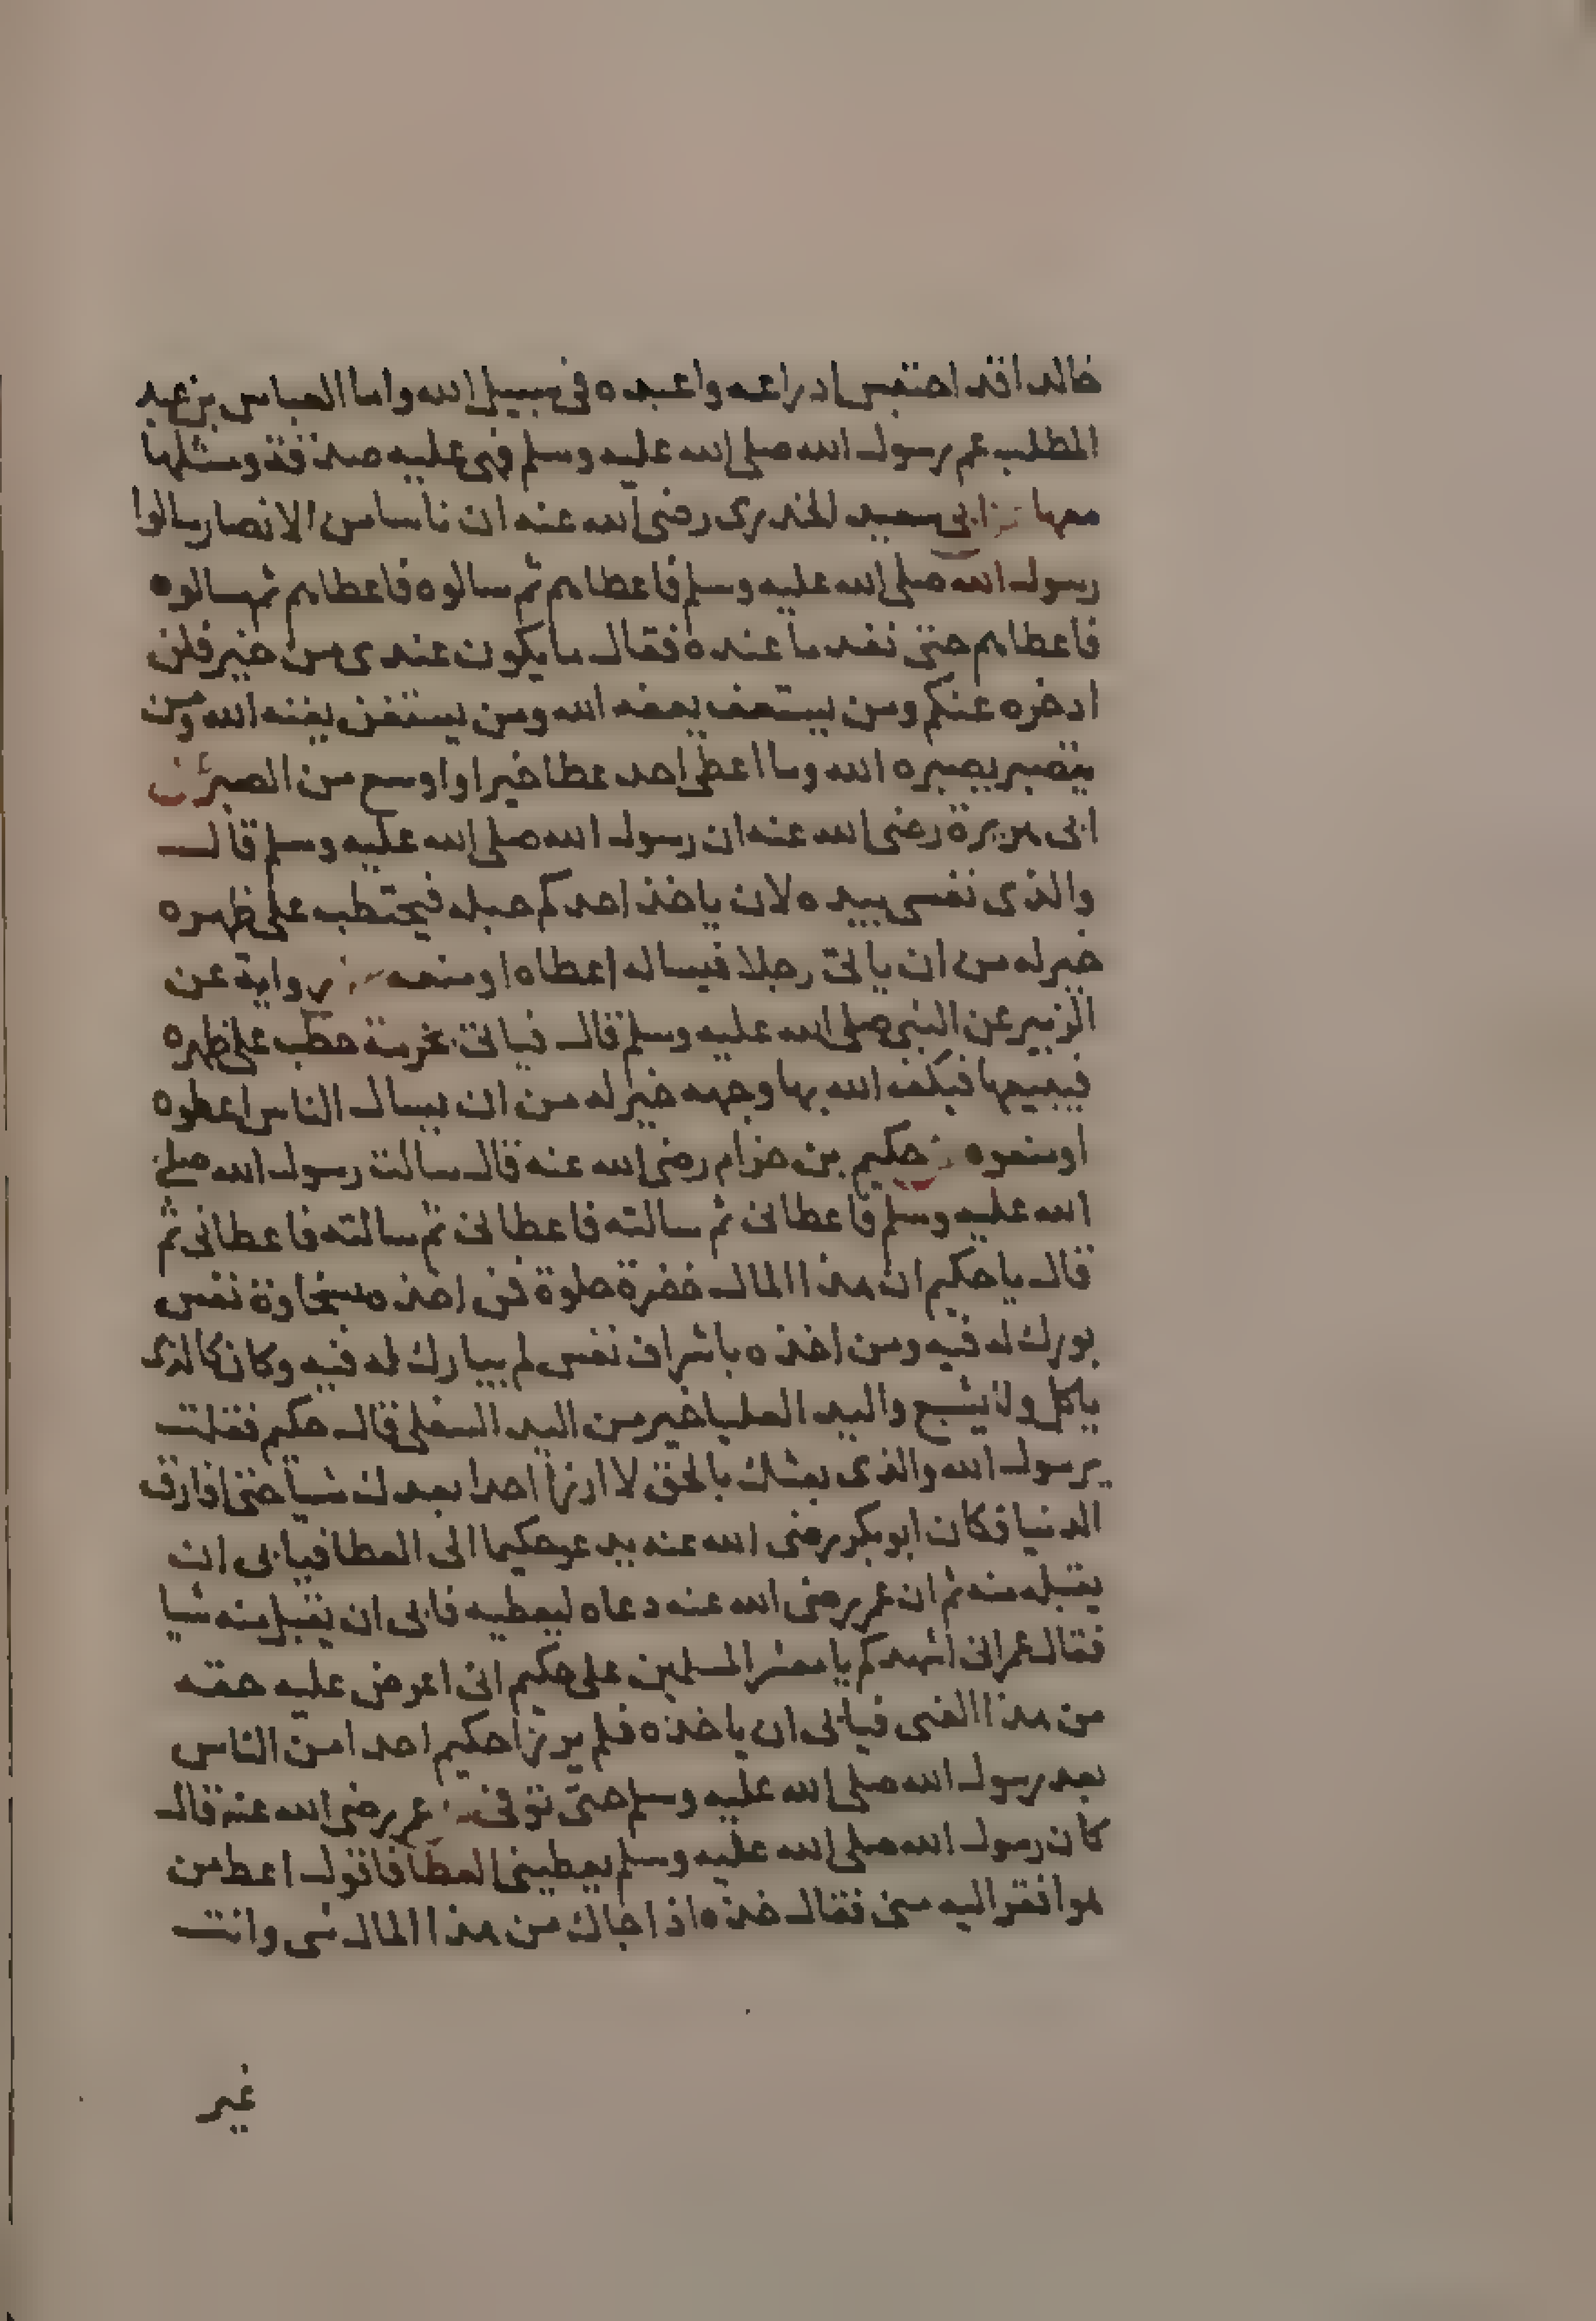 خالدا قد احتبس ادراعه واعبده في سبيل الله واما العباس بن عبد
المطلب عم رسول الله صلى الله عليه وسلم فهى عليه صدقة ومثلها
معها ابى سعيد الخدرى رضى الله عنه ان ناسا من الانصار سالوا
رسول الله صلى الله عليه وسلم فاعطاهم ثم سالوه فاعطاهم ثم سالوه
فاعطاهم حتى نفد ما عنده فقال ما يكون عندى من خير فلن
ادخره عنكم ومن يستعف يعفه الله ومن يستغن يغنه الله ومن
يتصبر يصبره الله وما اعطى احد عطا خيرا واوسع من الصبر عن
ابى هريرة رضى الله عنه ان رسول الله صلى الله عليه وسلم قال
والذى نفسى بيده لان ياخذ احدكم حبله فيحتطب على ظهره
خير له من ان ياتى رجلا فيساله اعطاه او منعه رواية عن
الزبير عن النبى صلى الله عليه وسلم قال فياتى بحزمة حطب على ظهره
فيبيعها فيكف الله بها وجهه خير له من ان يسال الناس اعطوه
او منعوه حكيم بن حزام رضى الله عنه قال سالت رسول الله صلى
الله عليه وسلم فاعطانى ثم سالته فاعطانى ثم سالته فاعطانى ثم
قال يا حكيم ان هذا المال خضرة حلوة فمن اخذه بسخاوة نفس
بورك له فيه ومن اخذه باشراف نفس لم يبارك له فيه وكان كالذى
ياكل ولا يشبع واليد العليا خير من اليد السفلى قال حكيم فقلت
يرسول الله والذى بعثك بالحق لا ارزا احدا بعدك شيا حتى افارق
الدنيا فكان ابو بكر رضى الله عنه يدعو حكيما الى العطا فيابى ان
يقبله منه ثم ان عمر رضى الله عنه دعاه ليعطيه فابى ان يقبل منه شيا
فقال عمر انى اشهدكم يا معشر المسلمين على حكيم انى اعرض عليه حقه
من هذا الفى فيابى ان ياخذه فلم يرزا حكيم احدا من الناس
بعد رسول الله صلى الله عليه وسلم حتى توفى عمر رضى الله عنه قال
كان رسول الله صلى الله عليه وسلم يعطينى العطا فاقول اعط من
هو افقر اليه منى فقال خذه اذا جاك من هذا المال شى وانت
غير